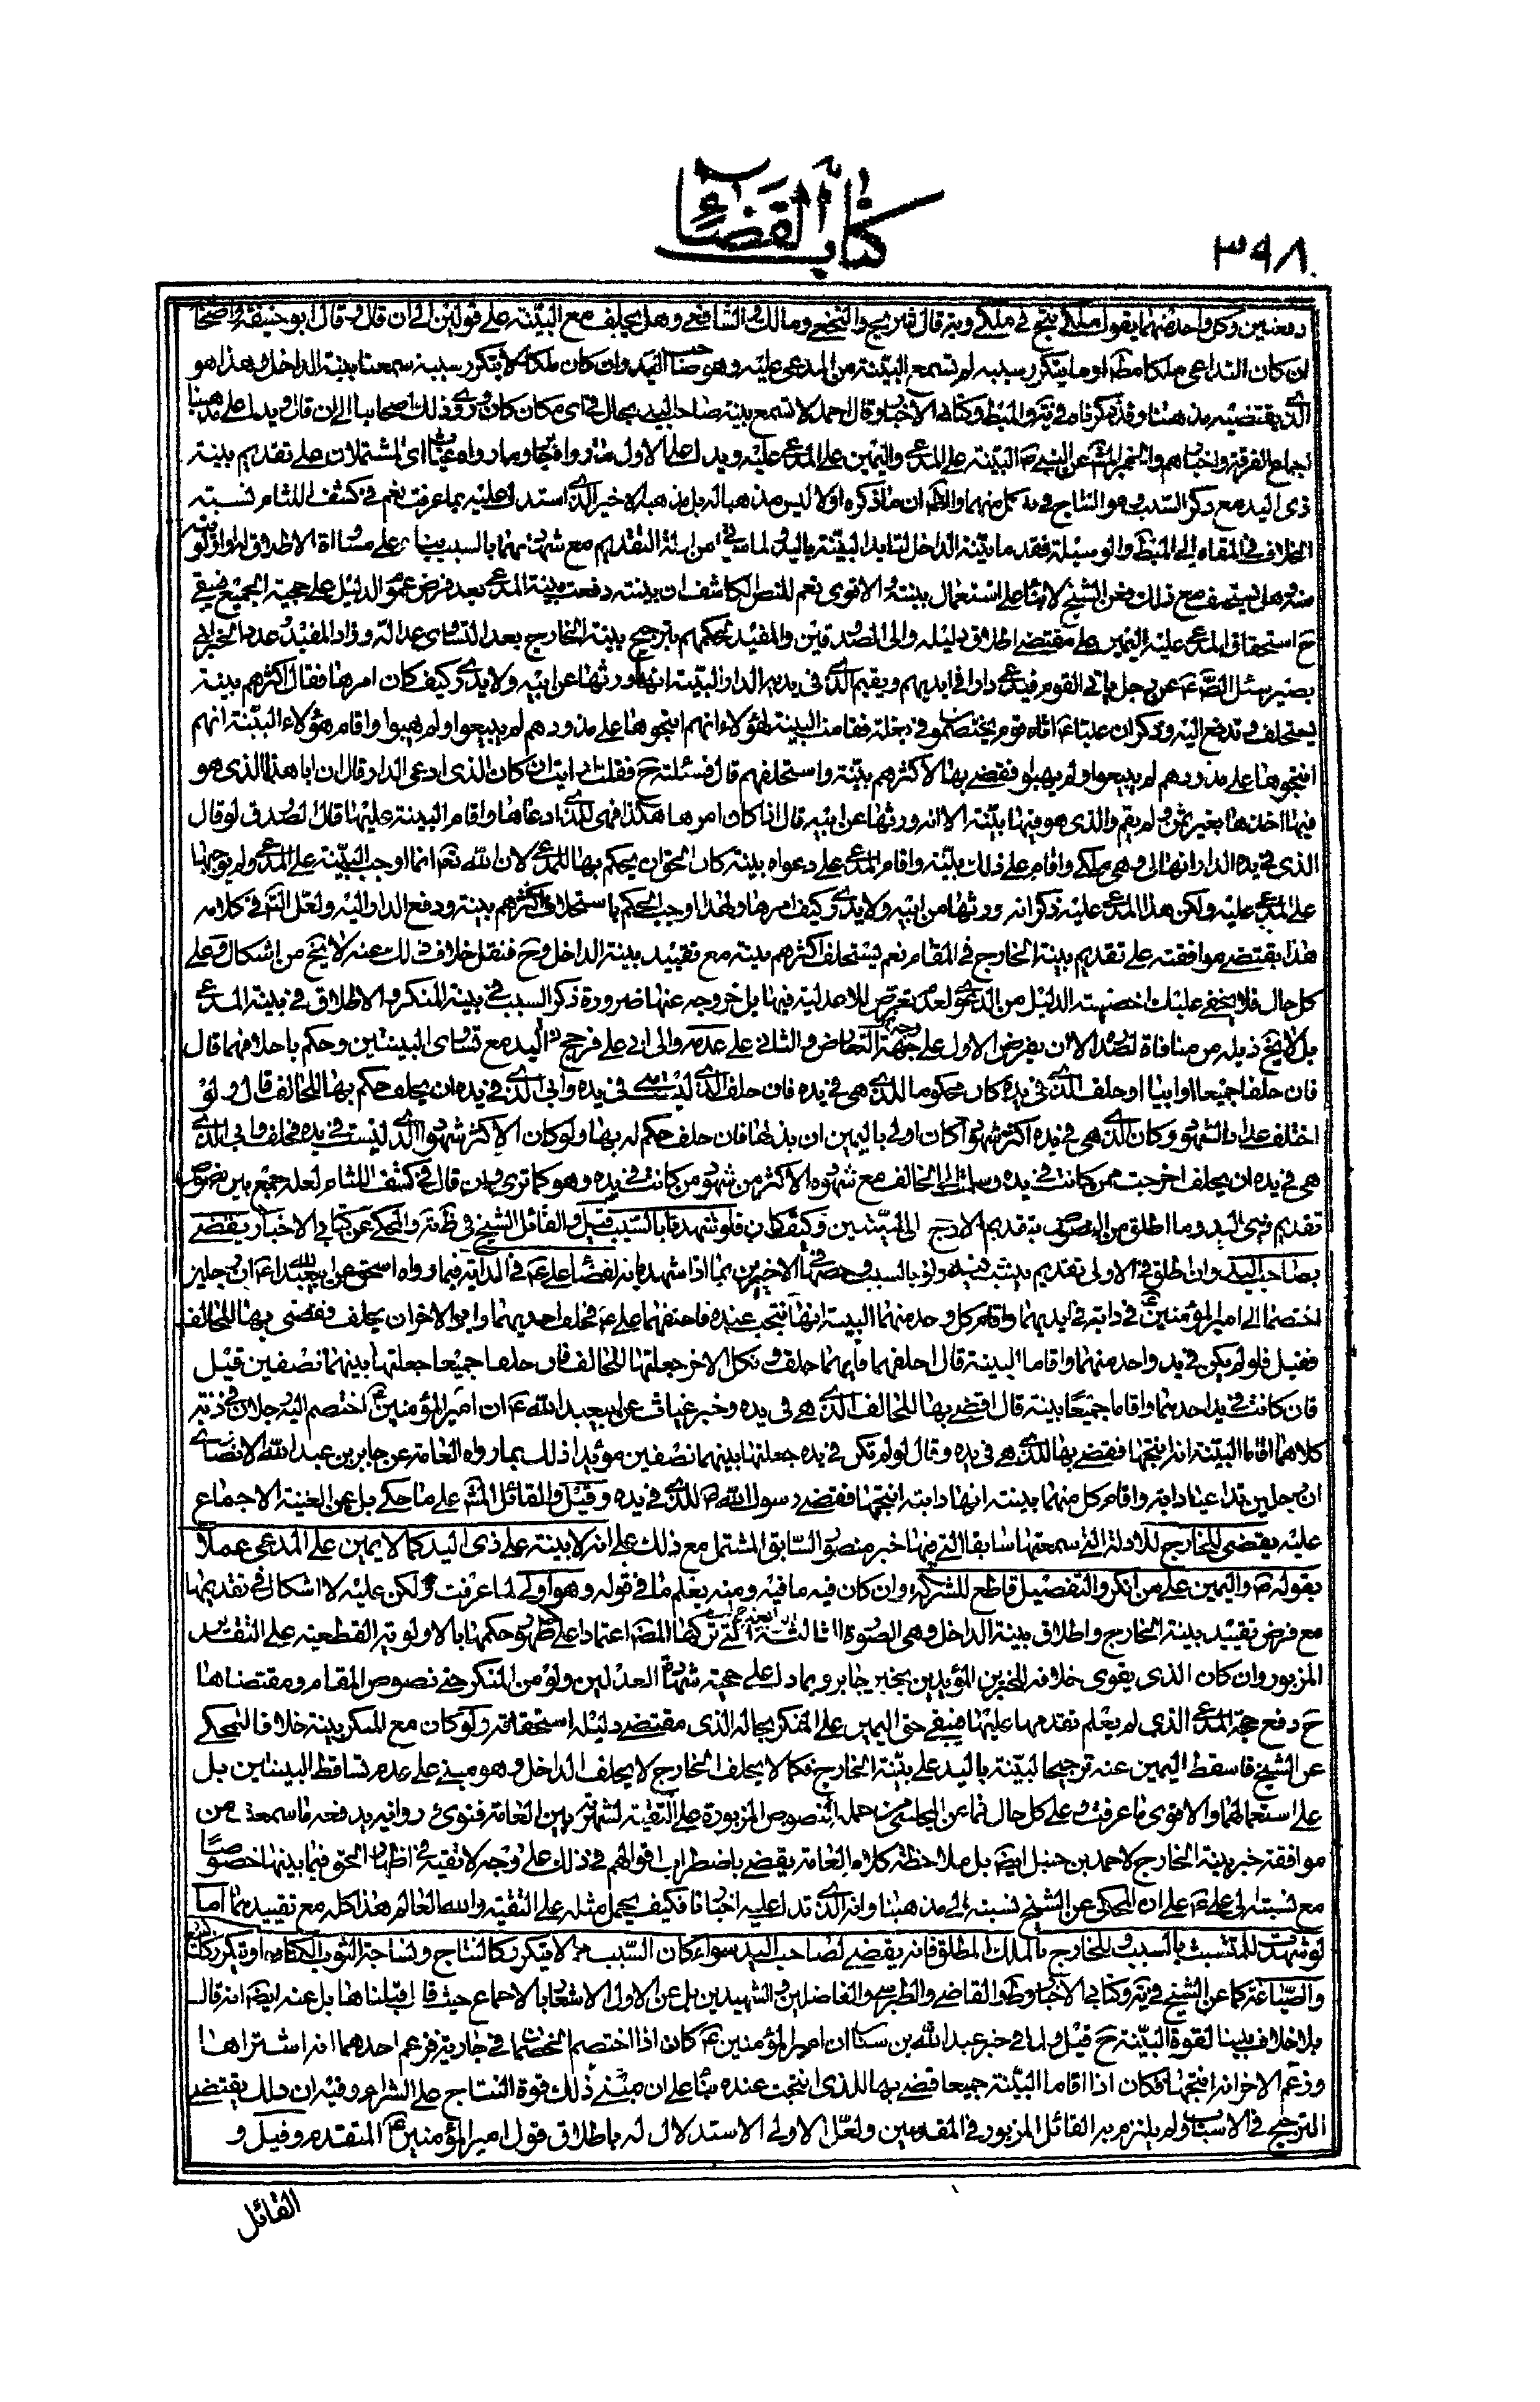 كتاب القضاء
٣٩٨
دفعتين وكل واحد منهما يقول ملكي نتج في ملكي وبه قال شريح والنخعي ومالك والشافعي وهل يحلف مع البينة على قولين الى ان قال وقال ابو حنيفة واصحابه
ان كان التداعي ملكا مطلقا او ما يتكرر سببه لم تسمع البينة من المدعى عليه وهو صاحب اليد وان كان ملكا لا يتكرر سببه سمعنا بينة الداخل وهذا هو
الذي يقتضيه مذهبنا وقد ذكرناه في يه والمبسوط وكتابي الاخبار وقال احمد لا تسمع بينة صاحب اليد بحال في اى مكان كان وروى ذلك اصحابنا الى ان قال ويدل على مذهبنا
اجماع الفرقة واخبارهم والخبر المشهور عن النبي ص البينة على المدعي واليمين على المدعى عليه ويدل على الاول ما رواه جابر وما رواه غياث اى المشتملان على تقديم بينة
ذى اليد مع ذكر السبب وهو النتاج في كل منهما والظ ان ما ذكره اولا ليس مذهبا له بل مذهبه الاخير الذي استدل عليه بما عرفت نعم في كشف اللثام نسبته
الخلاف في المقام الى المبسوط والوسيلة فقدما بينة الداخل لتأيد البينة باليد
منه وهل يحلف مع ذلك فعن الشيخ لا بناء على استعمال بينته الاقوى نعم للنص الكاشف ان بينته دفعت بينة المدعي بعد فرض عموم الدليل على حجية الجميع فيبقى
ح استحقاق المدعى عليه اليمين على مقتضى اطلاق دليله والى الصدوقين والمفيد لحكمهم بترجيح بينة الخارج بعد التساوى عدالة وزاد المفيد عددا لخبر ابي
بصير سئل الصادق ع عن رجل ياتي القوم فيدعي دارا في ايديهم ويقيم الذي في يده الدار البينة انه ورثها عن ابيه ولا يدري كيف كان امرها فقال اكثرهم بينة
يستحلف وتدفع اليه وذكر ان عليا ع اتاه قوم يختصمون في بغلة فقامت البينة لهؤلاء انهم انتجوها على مذودهم لم يبيعوا ولم يهبوا واقام هؤلاء البينة انهم
انتجوها على مذودهم لم يبيعوا ولم يهبوا فقضى بها لاكثرهم بينة واستحلفهم قال فسئلته ح فقلت ارايت ان كان الذى ادعى الدار قال ان ابا هذا الذى هو
فيها اخذها بغير ثمن ولم يقم الذى هو فيها بينة الا انه ورثها عن ابيه قال اذا كان امرها هكذا فهى للذي ادعاها واقام البينة عليها قال الصدوق لو قال
الذى في يده الدار انها لي وهي ملكي واقام على ذلك بينة واقام المدعي على دعواه بينة كان الحق ان يحكم بها للمدعي لان الله تعم انما اوجب البينة على المدعي ولم يوجبها
على المدعى عليه ولكن هذا المدعى عليه ذكر انه ورثها من ابيه ولا يدري كيف امرها ولهذا اوجب الحكم باستحلاف اكثرهم بينة ودفع الدار اليه ولعل التأمل في كلامه
هذا يقتضي موافقته على تقديم بينة الخارج في المقام نعم يستحلف اكثرهم بينة مع تقييد بينة الداخل وح فنقل خلافه في ذلك عنه لا يخ من اشكال وعلى
كل حال فلا يخفى عليك اخصية الدليل من الدعوى لعدم تعرض للاعدلية فيها بل خروجه عنها ضرورة ذكر السبب في بينة المنكر والاطلاق في بينة المدعي
بل لا يخ ذيله من منافاة لصدره الا ان يفرض الاول على جهة التعارض والثاني على عدمه والى ابي علي فرجح ذا اليد مع تساوى البينتين وحكم باحلافهما قال
فان حلفا جميعا او ابيا او حلف الذي في يده كان محكوما للذي هى في يده فان حلف الذي ليست في يده وابى الذي في يده ان يحلف حكم بها للحالف قال ولو
اختلف عداد الشهود وكان الذي هى في يده اكثر شهودا كان اولى باليمين ان بذلها فان حلف حكم له بها ولو كان الاكثر شهودا الذي ليست في يده فحلف وابى الذي
هى في يده ان يحلف اخرجت ممن كانت في يده وسلمت الى الحالف مع شهوده الاكثر من شهود من كانت في يده وهو كما ترى وان قال في كشف اللثام لعله جمع بين نصوص
تقديم ذى اليد وما اطلق من النصوص بتقديم الارجح من البينتين وكيف كان فلو شهدتا بالسبب قيل والقائل الشيخ في ظ يه والمحكى عن كتابي الاخبار يقضى
لصاحب اليد وان اطلق في الاولى تقديم بينة ذى اليد ولو بالسبب وخصه في الاخيرين بما اذا شهدتا به لقضاء علي ع في الدابة فيما رواه اسحق عن ابيعبدالله ع ان رجلين
اختصما الى امير المؤمنين ع في دابة في ايديهما واقام كل واحد منهما البينة انها نتجت عنده فاحلفهما علي ع فحلف احدهما وابى الاخر ان يحلف فقضى بها للحالف
فقيل فلو لم يكن في يد واحد منهما واقاما البينة قال احلفهما فايهما حلف ونكل الاخر جعلتها للحالف فان حلفا جميعا جعلتها بينهما نصفين قيل
فان كانت في يد احدهما واقاما جميعا بينة قال اقضى بها للحالف الذي هى في يده وخبر غياث عن ابيعبد الله ع ان امير المؤمنين ع اختصم اليه رجلان في دابة
كلاهما اقاما البينة انه انتجها فقضى بها للذي هى في يده وقال لو لم تكن في يده جعلتها بينهما نصفين مؤيدا ذلك بما رواه العامة عن جابر بن عبد الله الانصاري
ان رجلين تداعيا دابة واقام كل منهما بينة انها دابته انتجها فقضى رسول الله ص للذي في يده وقيل والقائل المشهور على ما حكى بل عن الغنية الاجماع
عليه يقضى للخارج للادلة التي سمعتها سابقا التي منها خبر منصور السابق المشتمل مع ذلك على انه لا بينة على ذى اليد كما لا يمين على المدعى عملا
بقوله ص واليمين على من انكر والتفصيل قاطع للشركة وان كان فيه ما فيه ومنه يعلم ما في قوله وهو اولى لما عرفت ولكن عليه لا اشكال في تقديمها
مع فرض تقييد بينة الخارج واطلاق بينة الداخل وهى الصورة الثالثة التي تركها المصنف اعتمادا على ظهور حكمها بالاولوية القطعية على التقدير
المزبور وان كان الذى يقوى خلافه للخبرين المؤيدين بخبر جابر وبما دل على حجية شهادة العدلين ولو من المنكر حتى نصوص المقام ومقتضاها
ح دفع حجة المدعي الذى لم يعلم تقدمها عليها فيبقى حق اليمين على المنكر بحاله الذى مقتضى دليله استحقاقه ولو كان مع المنكر بينة خلافا للمحكى
عن الشيخ فاسقط اليمين عنه ترجيحا لبينته باليد على بينة الخارج فكما لا يحلف الخارج لا يحلف الداخل وهو مبني على عدم تساقط البينتين بل
على استعمالهما والاقوى ما عرفت وعلى كل حال فما عن المجلسي من حمل النصوص المزبورة على التقية لشهرته بين العامة فتوى ورواية يدفعه ما سمعته من
موافقة خبر بينة الخارج لاحمد بن حنبل ايضا بل ملاحظة كلام العامة يقضى باضطراب اقوالهم في ذلك على وجه لا تقية في اظهار الحق فيما بينها خصوصا
مع نسبته الى علي ع على ان المحكى عن الشيخ نسبته الى مذهبنا وانه الذي تدل عليه اخبارنا فكيف يحمل مثله على التقية والله العالم هذا كله مع تقييدهما اما
لو شهدت للمتشبث بالسبب وللخارج بالملك المطلق فانه يقضى لصاحب اليد سواء كان السبب مما لا يتكرر كالنتاج ونساجة الثوب الكتان او يتكرر كالبيع
والصياغة كما عن الشيخ في يه وكتابي الاخبار وط والقاضي والطبرسي والفاضلين والشهيدين بل عن الاول الاشعار بالاجماع حيث قال قبلناها بل عنه ايضا انه قال
بلا خلاف بيننا لقوة البينة ح قيل ولما في خبر عبد الله بن سنان ان امير المؤمنين ع كان اذا اختصم الخصمان في جارية فزعم احدهما انه اشتراها
وزعم الاخر انه انتجها فكان اذا اقاما البينة جميعا قضى بها للذى انتجت عنده بناء على ان مبنى ذلك قوة النتاج على الشراء وفيه ان ذلك يقتضى
الترجيح في الاسباب ولم يلتزم به القائل المزبور في المقدمين ولعل الاولى الاستدلال له باطلاق قول امير المؤمنين ع المتقدم وقيل و
القائل